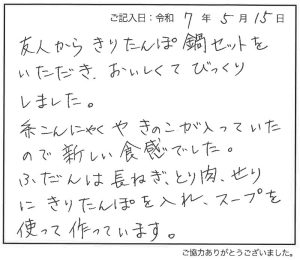 ご記入日：令和 7 年 5 月 15 日
友人から きりたんぽ 鍋セットを
いただき、おいしくて びっくり
しました。
糸こんにゃく や きのこが入っていた
ので 新しい 食感でした。
ふだんは 長ねぎ、とり肉、せり
に きりたんぽを 入れ、スープを
使って 作っています。
ご協力ありがとうございました。